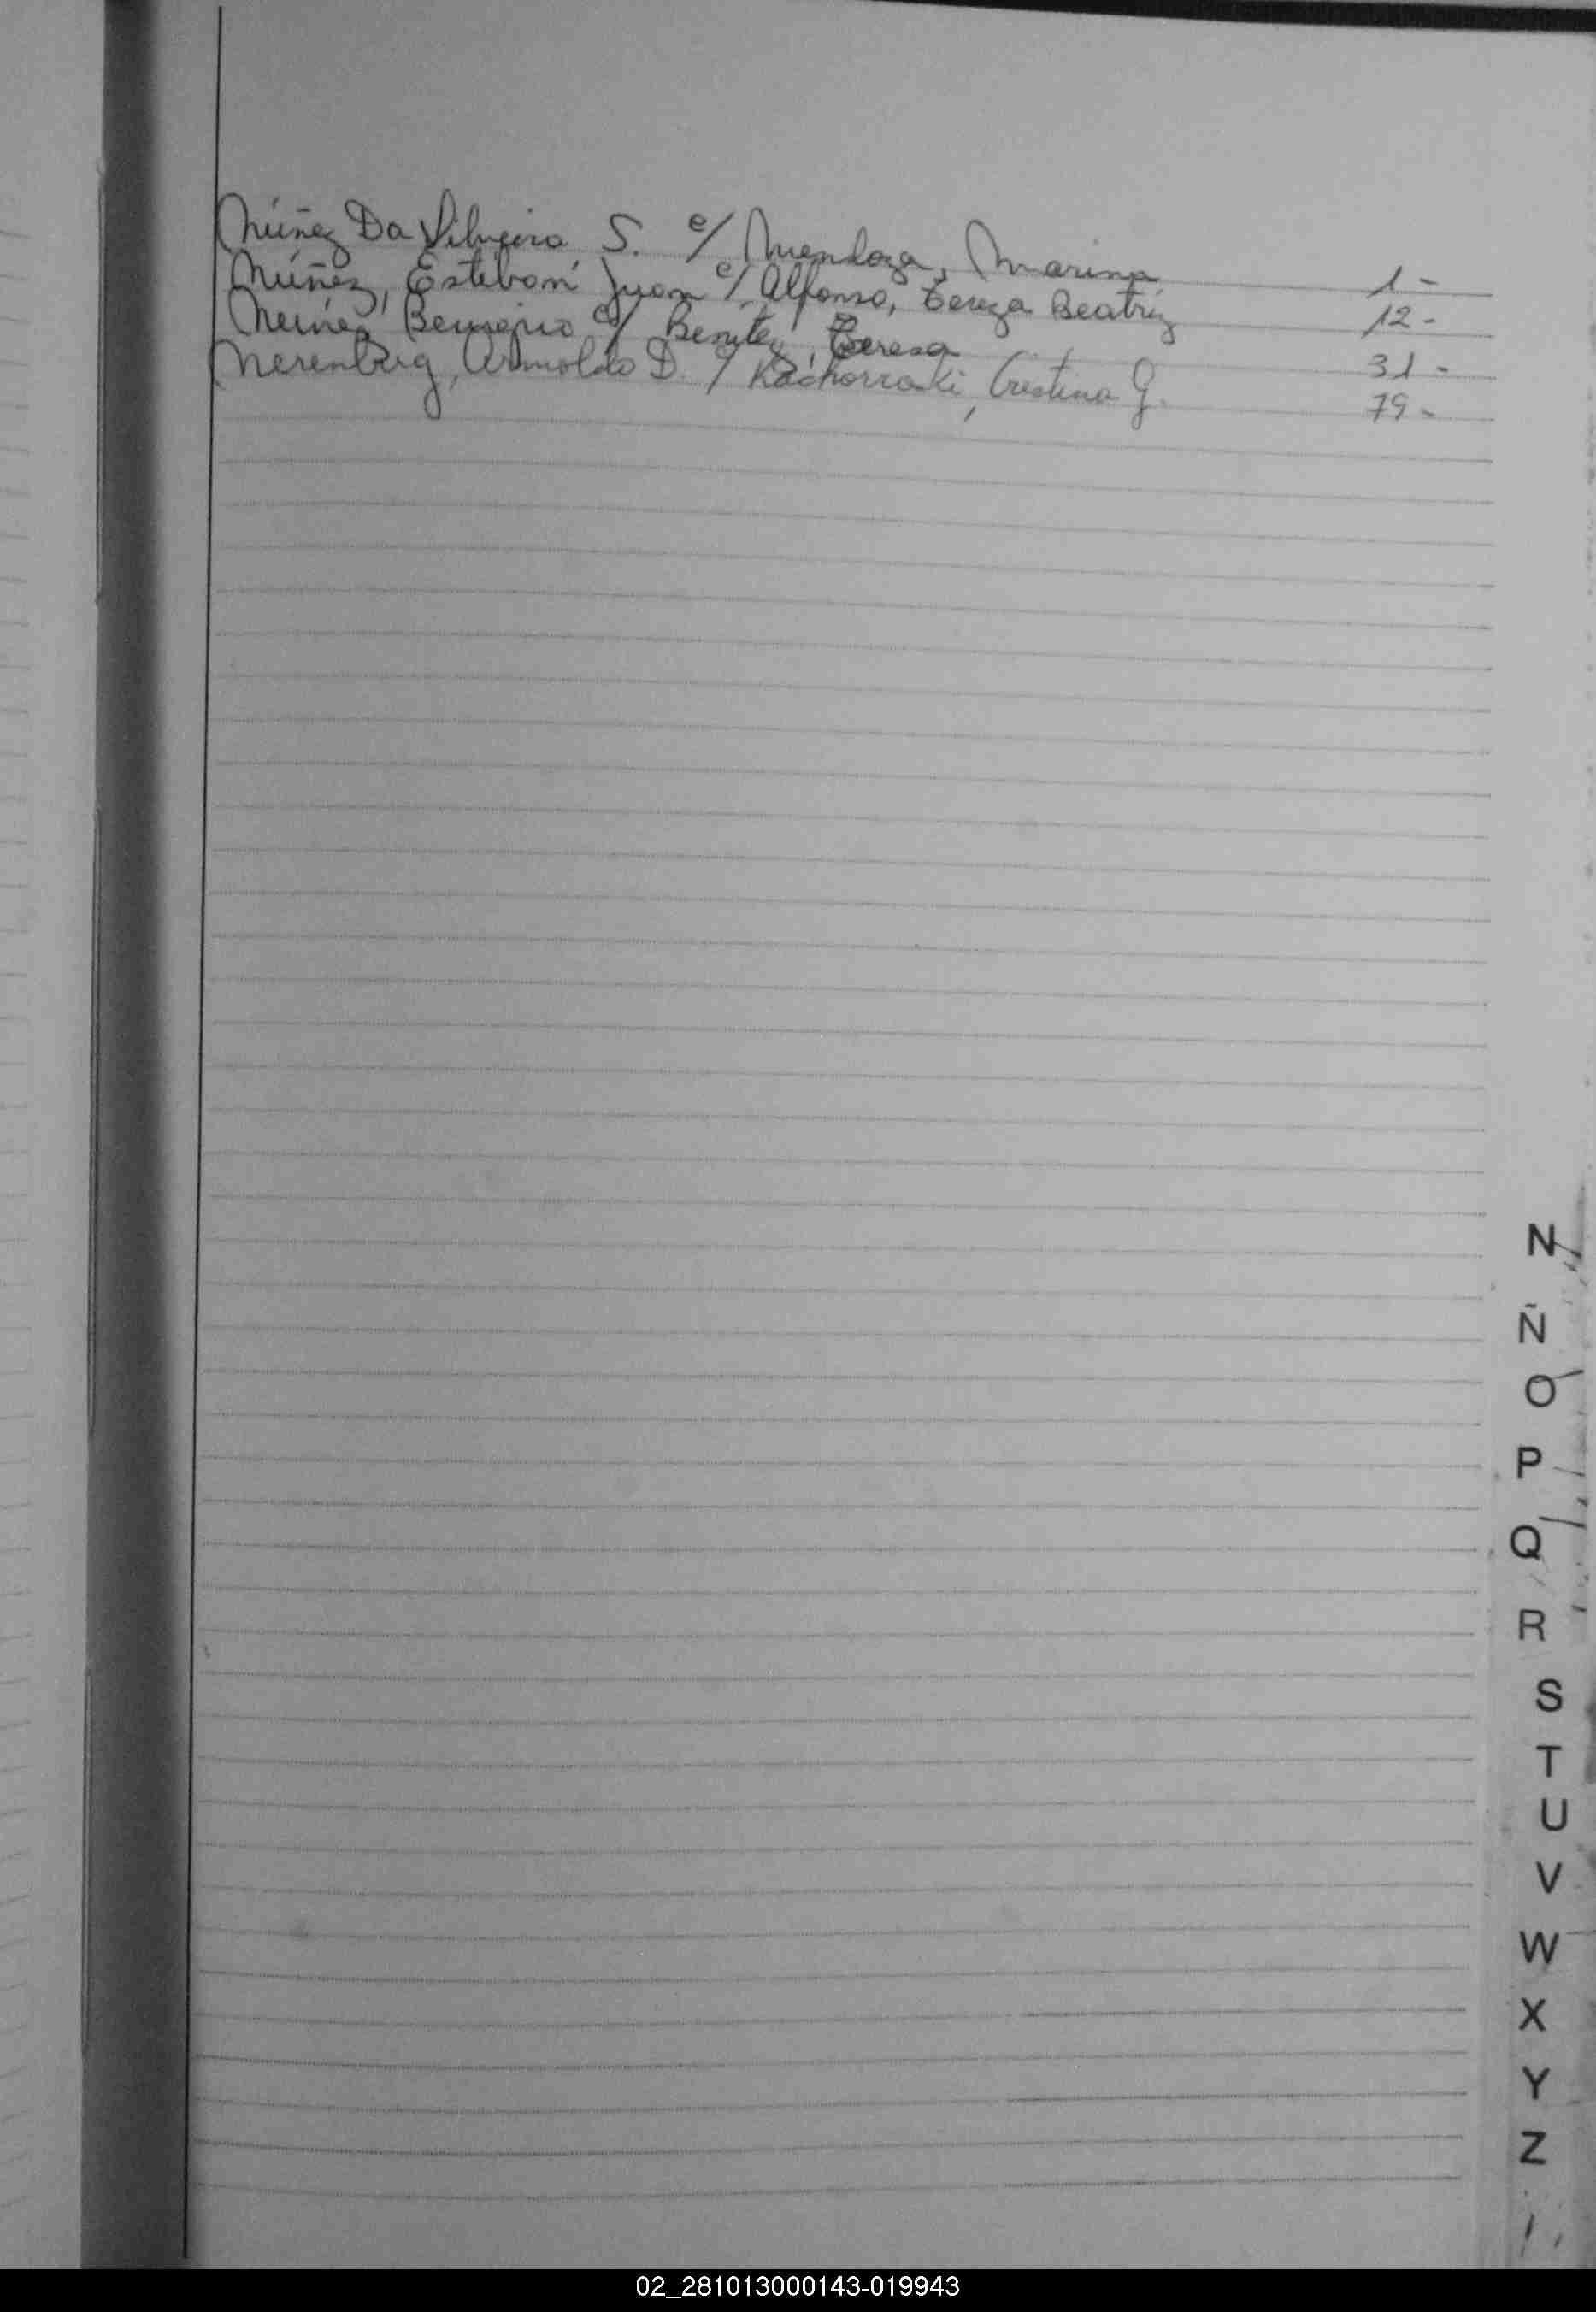 Núñez Da Silveira, S. c/ Mendoza, Marina 1-
Núñez, Esteban Juan c/ Alfonso, Tereza Beatriz 12-
Núñez, c/ Benitez, Teresa 31-
Nerenberg, Arnoldo D. c/ Cristina G. 79-
N
Ñ
O
P
Q
R
S
T
U
V
W
X
Y
Z
02_281013000143-019943